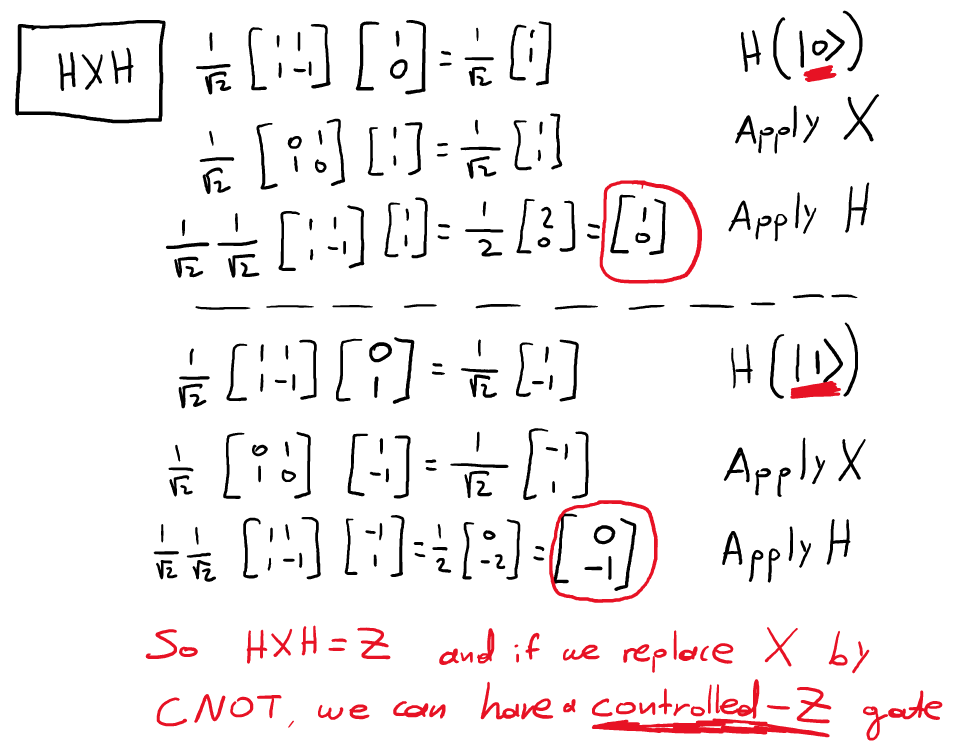 HXH 1/√2 [1 1; 1 -1] [1; 0] = 1/√2 [1; 1] H(|0>)
1/√2 [0 1; 1 0] [1; 1] = 1/√2 [1; 1] Apply X
1/√2 1/√2 [1 1; 1 -1] [1; 1] = 1/2 [2; 0] = [1; 0] Apply H
1/√2 [1 1; 1 -1] [0; 1] = 1/√2 [1; -1] H(|1>)
1/√2 [0 1; 1 0] [1; -1] = 1/√2 [-1; 1] Apply X
1/√2 1/√2 [1 1; 1 -1] [-1; 1] = 1/2 [0; -2] = [0; -1] Apply H
So HXH = Z and if we replace X by
CNOT, we can have a controlled-Z gate